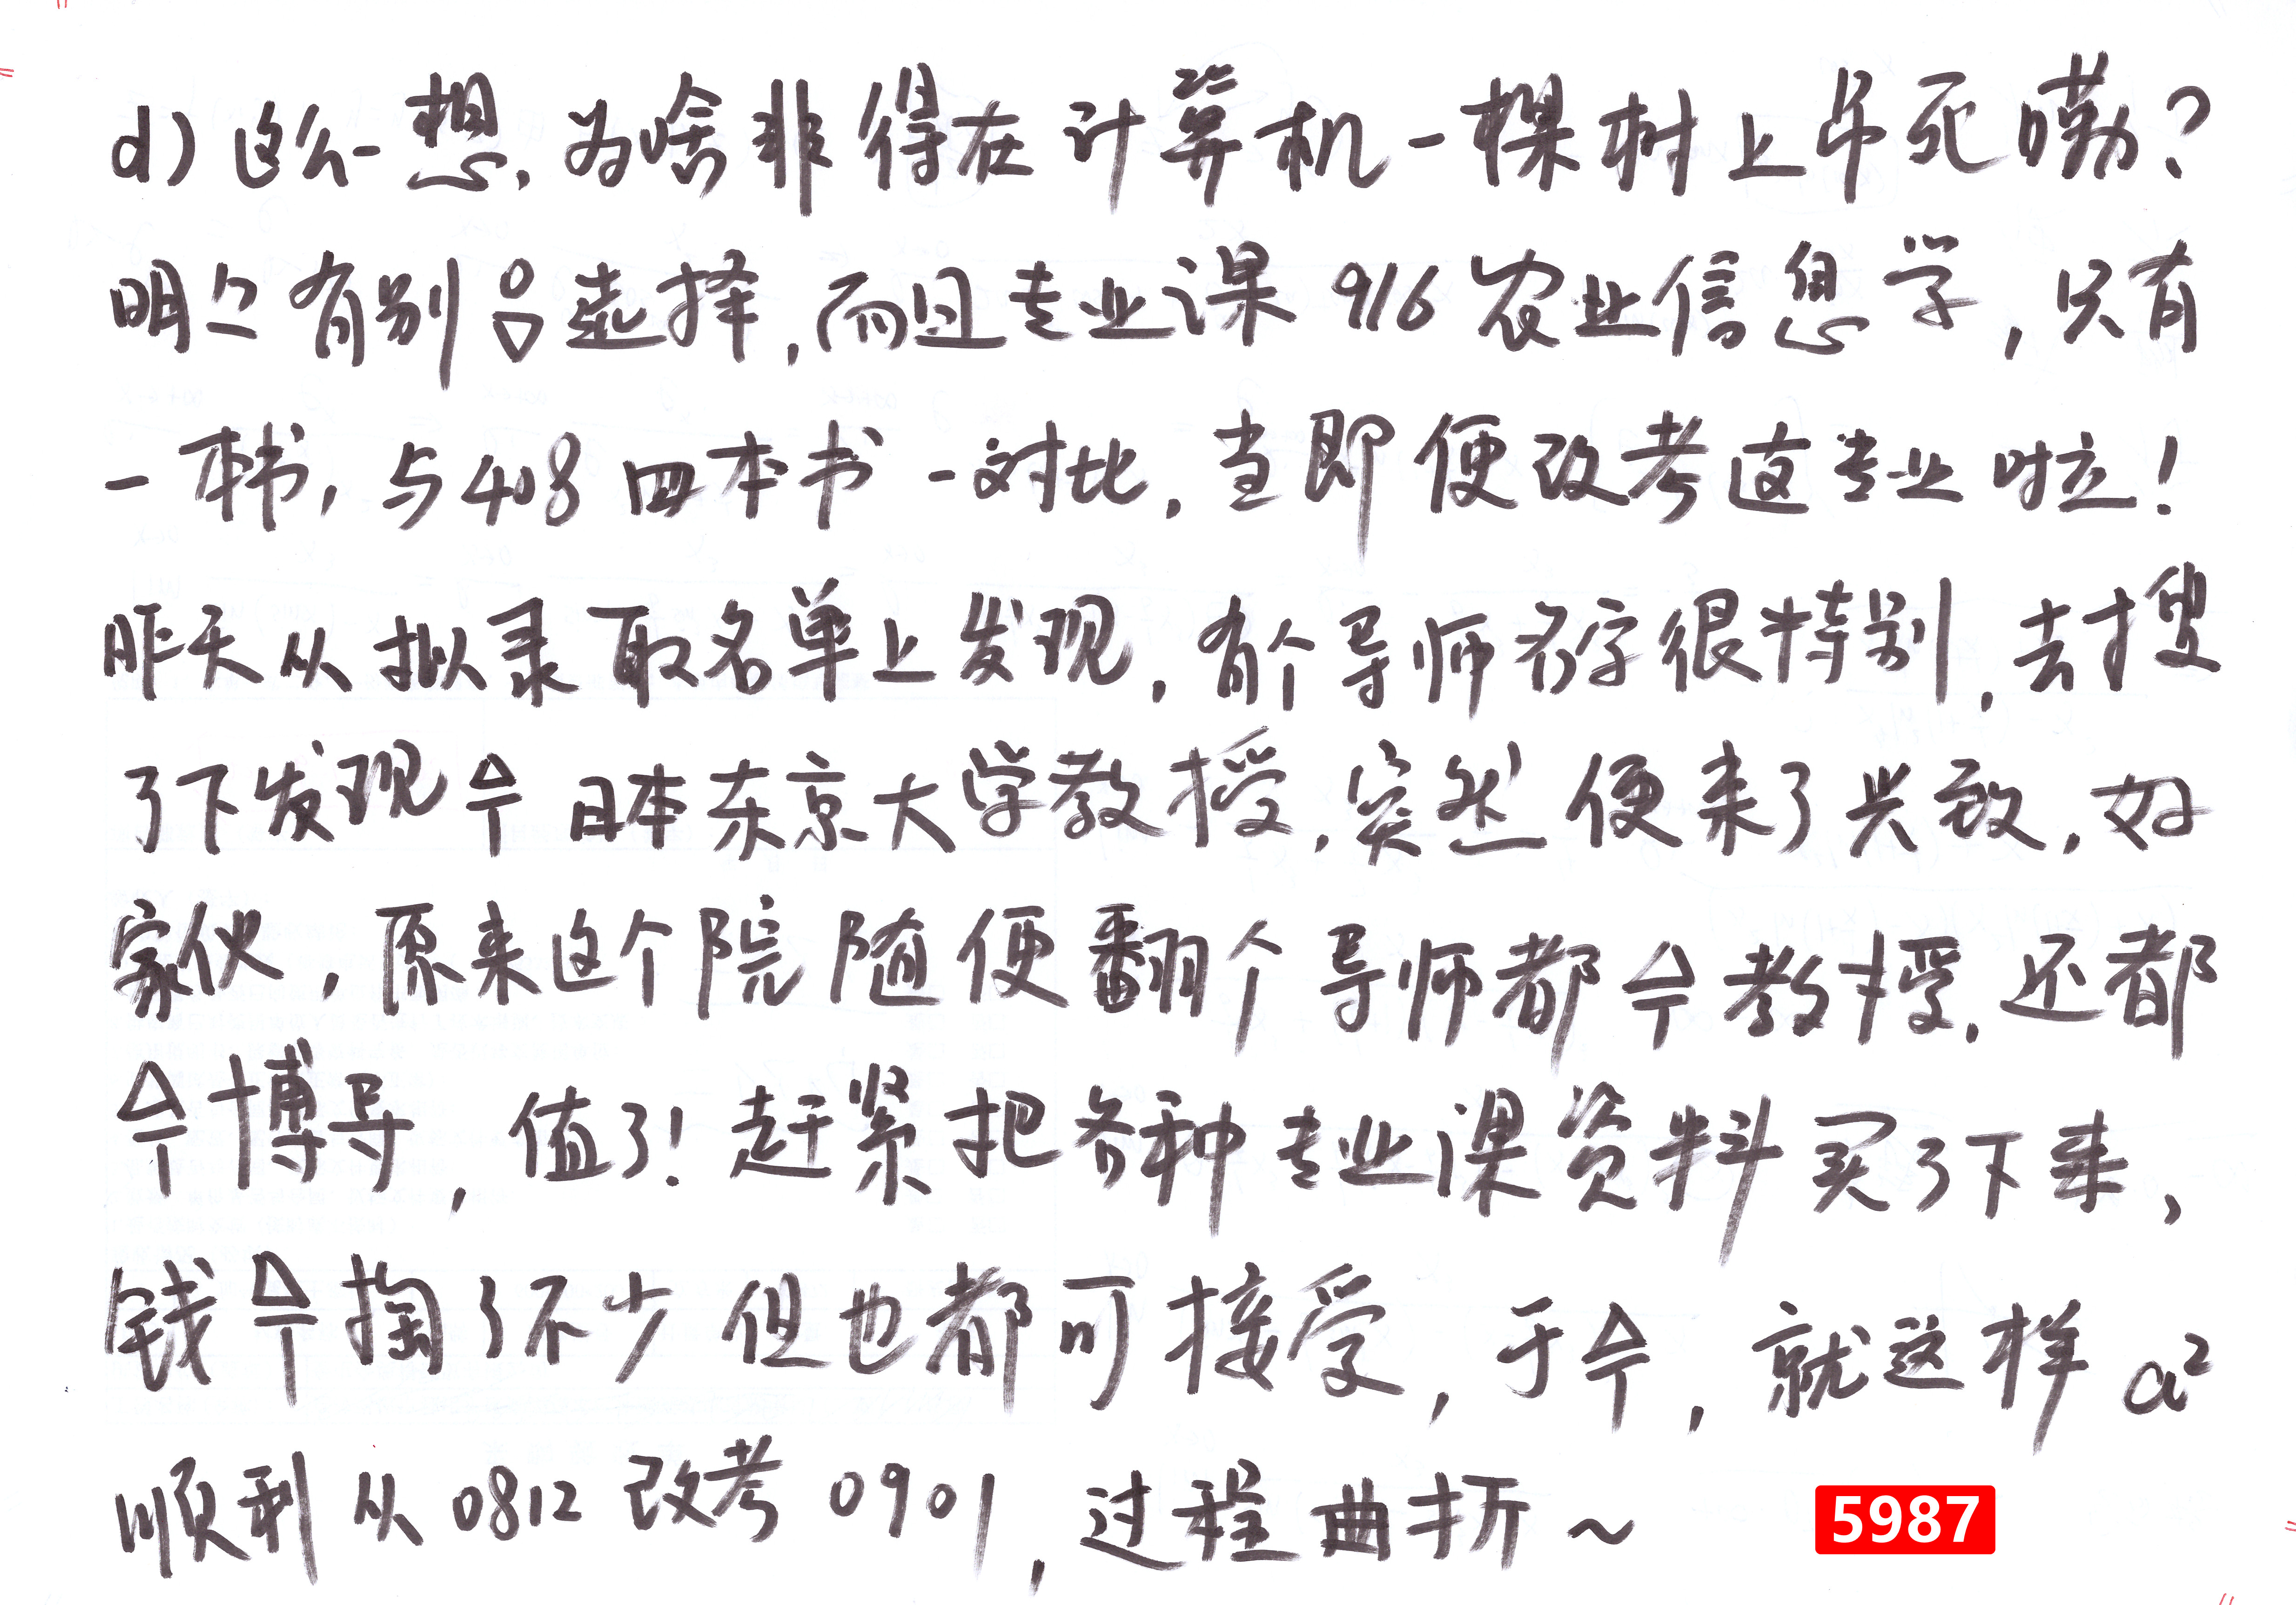 d)这么一想,为啥非得在计算机一棵树上吊死嘞?
明々有别 选择,而且专业课916农业信息学,只有
一本书,与408四本书一对比,当即便改考这专业啦!
昨天从拟录取名单上发现,有个导师名字很特别,去搜
了下发现 日本东京大学教授,突然便来了兴致,好
家伙,原来这个院随便翻个导师都 教授,还都
博导,值了!赶紧把各种专业课资料买了下来,
钱 掏了不少但也都可接受,于 ,就这样a²
顺利从0812改考0901,过程曲折~
5987